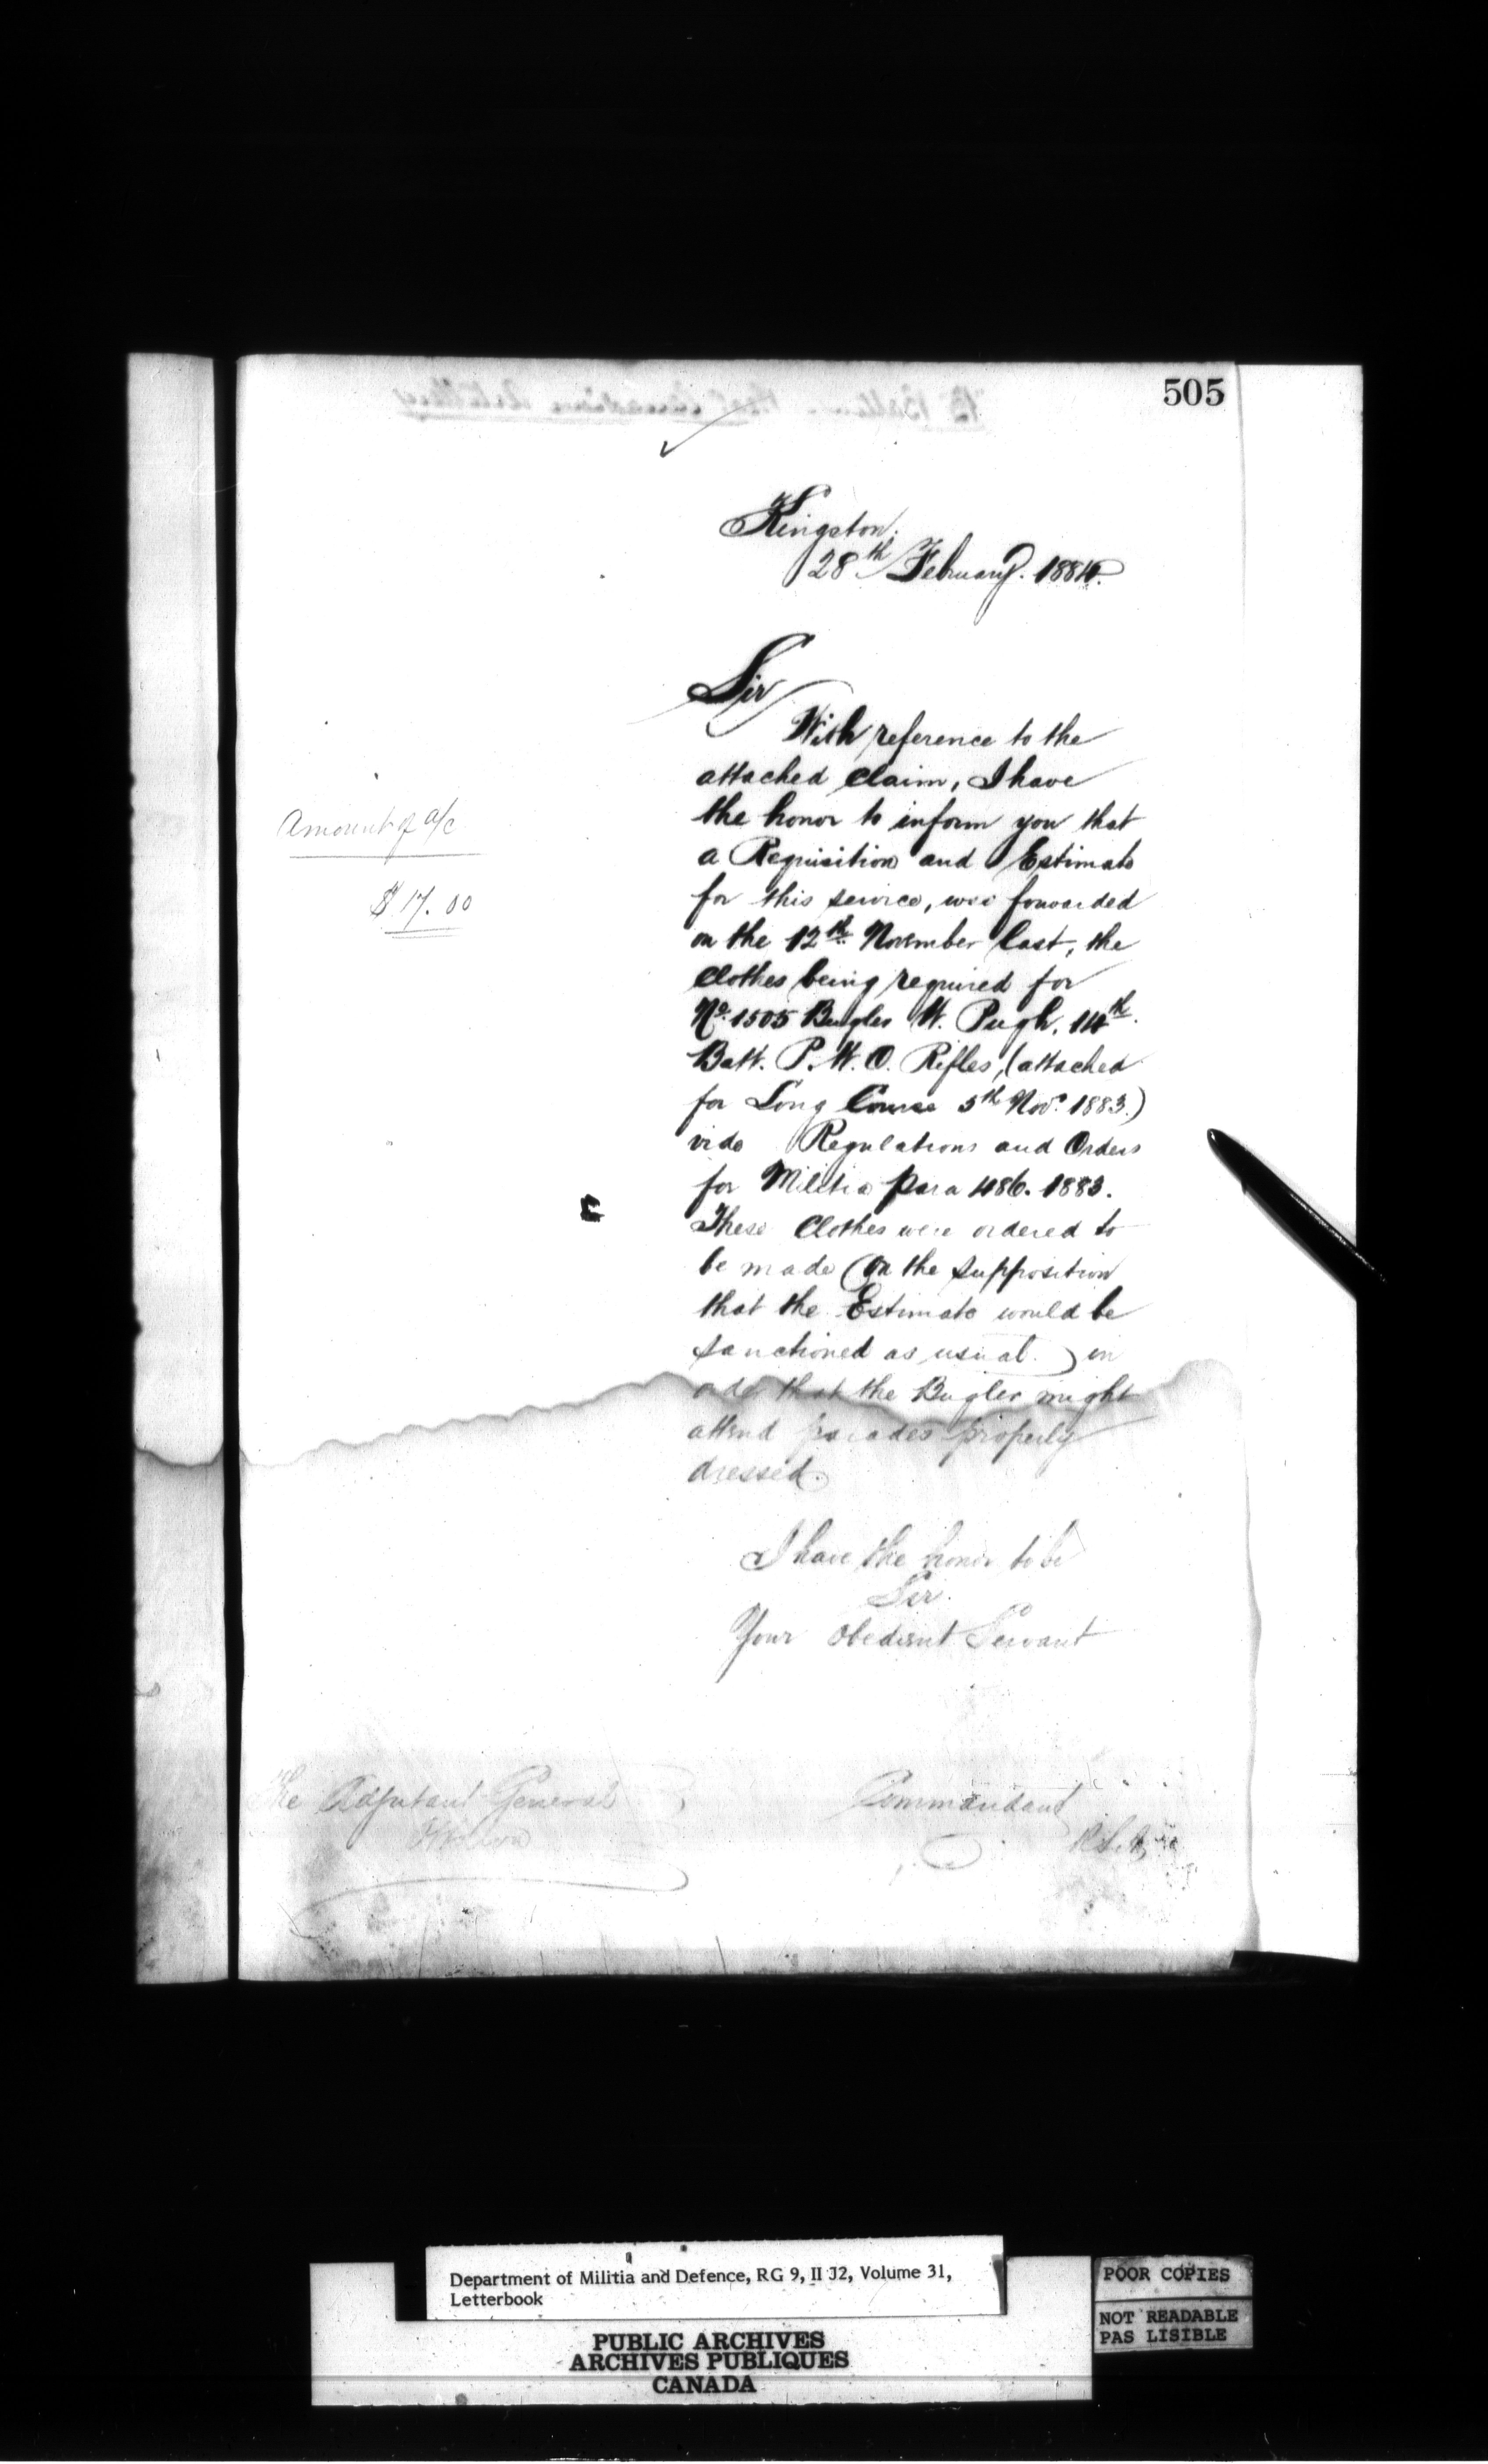 505
Kingston,
28th February. 1884.
Sir
With reference to the
attached Claim, I have
the honor to inform you that
a Requisition and Estimate
for this service, was forwarded
on the 12th November last, the
Clothes being required for
No. 1505 Bugler W. Pugh. 14th
Batt. P. W. O. Rifles, (attached
for Long Course 5th Nov. 1883.)
vide Regulations and Orders
for Militia para 486. 1883.
These Clothes were ordered to
be made (on the supposition
that the Estimate would be
sanctioned as usual.) in
order that the Bugler might
attend parades properly
dressed.
I have the honor to be
Sir.
Your Obedient Servant
Amount of a/c
$17.00
The Adjutant General
Commandant
Department of Militia and Defence, RG 9, II J2, Volume 31,
Letterbook
PUBLIC ARCHIVES
ARCHIVES PUBLIQUES
CANADA
POOR COPIES
NOT READABLE
PAS LISIBLE